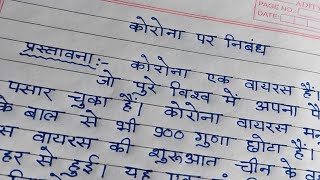 ADIT
PAGE NO.
DATE
कोरोना पर निबंध
प्रस्तावना:- कोरोना एक वायरस है।
जो पुरे विश्व में अपना पै
पसार चुका हैं। कोरोना वायरस मन
के बाल से भी 900 गुणा छोटा हैं।
स वायरस की शुरूआत चीन के व
हर से हुई। यह